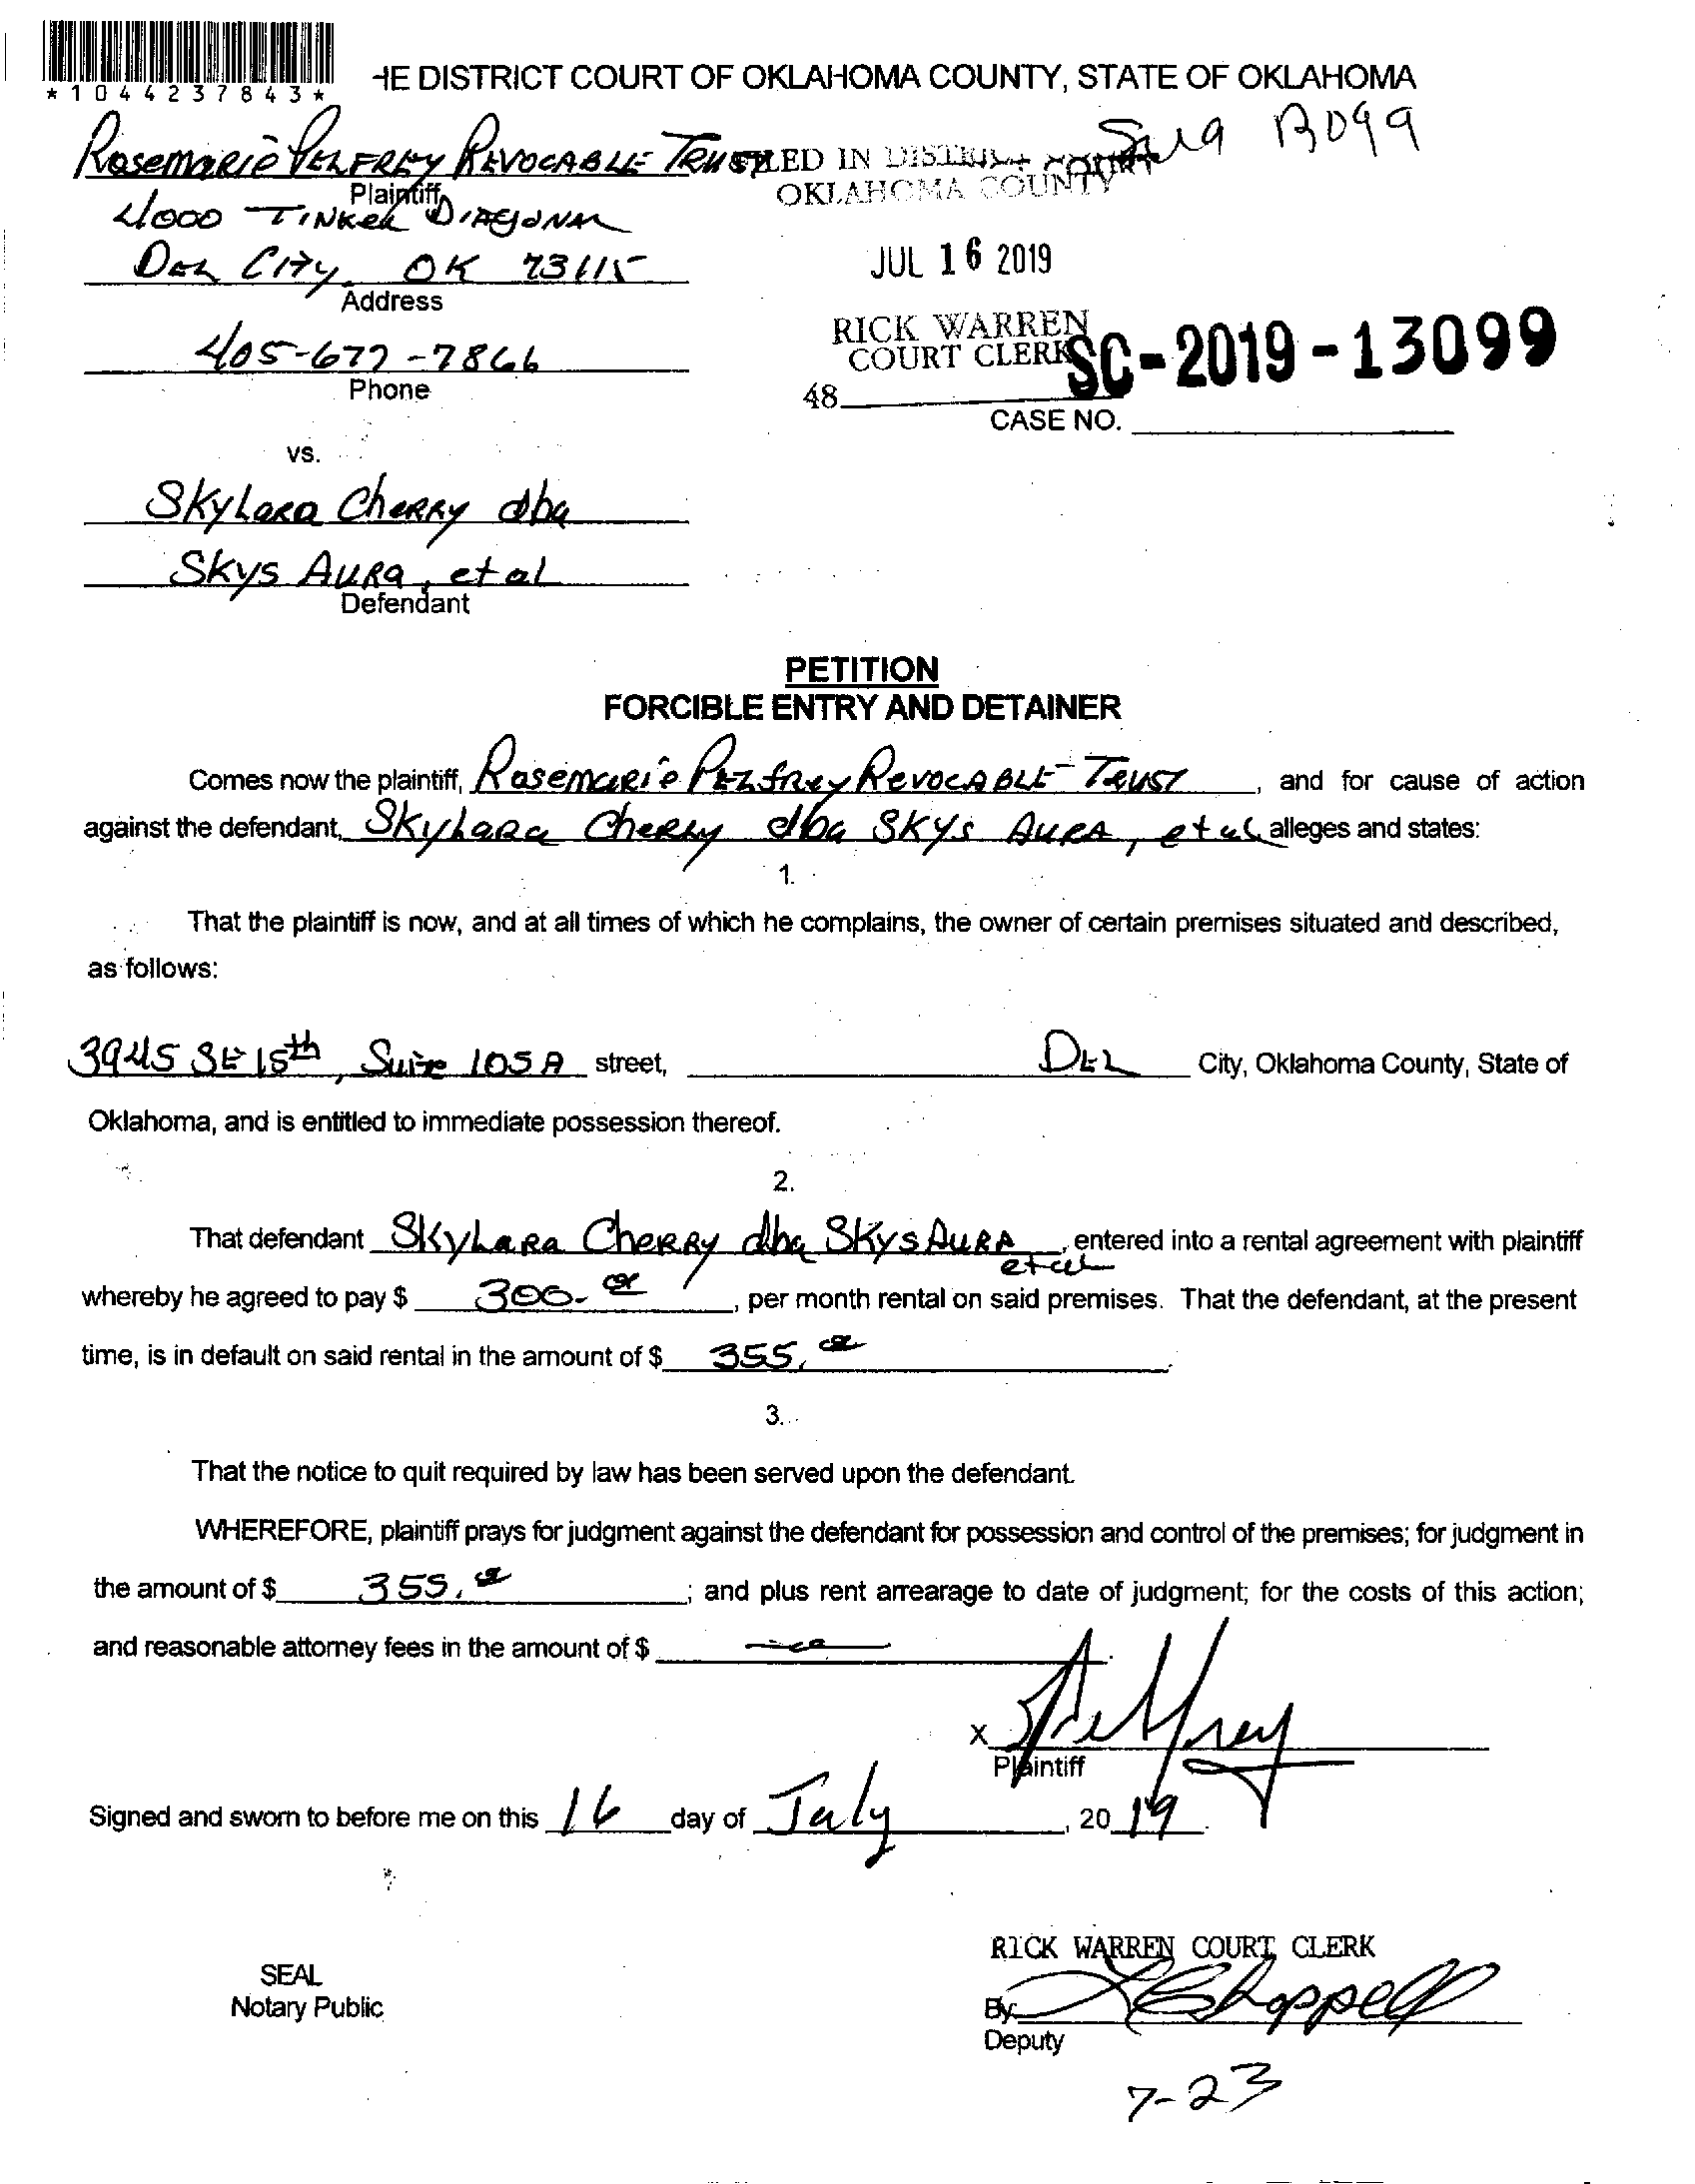 *1044237843*
HE DISTRICT COURT OF OKLAHOMA COUNTY, STATE OF OKLAHOMA
Rosemarie Pelfrey Revocable Trust
Plaintiff
FILED IN DISTRICT COURT
OKLAHOMA COUNTY
4000 Tinker Diagonal
Del City, OK 73115
Address
JUL 16 2019
405-677-7866
Phone
RICK WARREN
COURT CLERK
48
SC-2019-13099
CASE NO.
vs.
Skylara Cherry dba
Skys Aura, et al
Defendant
PETITION
FORCIBLE ENTRY AND DETAINER
Comes now the plaintiff, Rosemarie Pelfrey Revocable Trust, and for cause of action
against the defendant, Skylara Cherry dba Skys Aura, et al alleges and states:
1.
That the plaintiff is now, and at all times of which he complains, the owner of certain premises situated and described,
as follows:
3945 SE 15th, Suite 105A street, Del City, Oklahoma County, State of
Oklahoma, and is entitled to immediate possession thereof.
2.
That defendant Skylara Cherry dba Skys Aura et al, entered into a rental agreement with plaintiff
whereby he agreed to pay $ 300.-, per month rental on said premises. That the defendant, at the present
time, is in default on said rental in the amount of $ 355.
3.
That the notice to quit required by law has been served upon the defendant.
WHEREFORE, plaintiff prays for judgment against the defendant for possession and control of the premises; for judgment in
the amount of $ 355.; and plus rent arrearage to date of judgment; for the costs of this action;
and reasonable attorney fees in the amount of $
x Pelfrey
Plaintiff
Signed and sworn to before me on this 16 day of July, 2019.
RICK WARREN COURT CLERK
SEAL
Notary Public
By: Chappell
Deputy
7-23